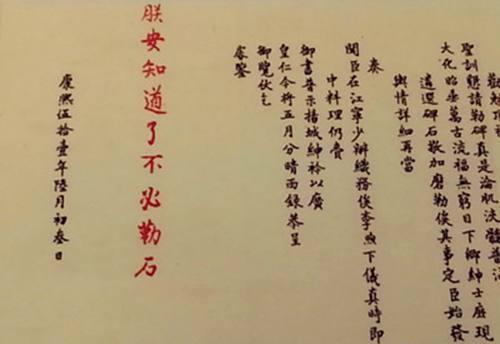 聖訓懇請勒碑真是淪肌浹髓普沾
大化昭垂萬古流福無窮目下鄉紳士庶現
遴選碑石敬加磨勒俟其事定臣始發
輿情詳細再當
奏
聞臣在江寧少辦織務俟李煦下儀真時即
中料理仍賫
御書普示揚城紳衿以廣
皇仁今將五月分晴雨錄恭呈
御覽伏乞
睿鑒
朕安知道了不必勒石
康熙伍拾壹年陸月初叁日